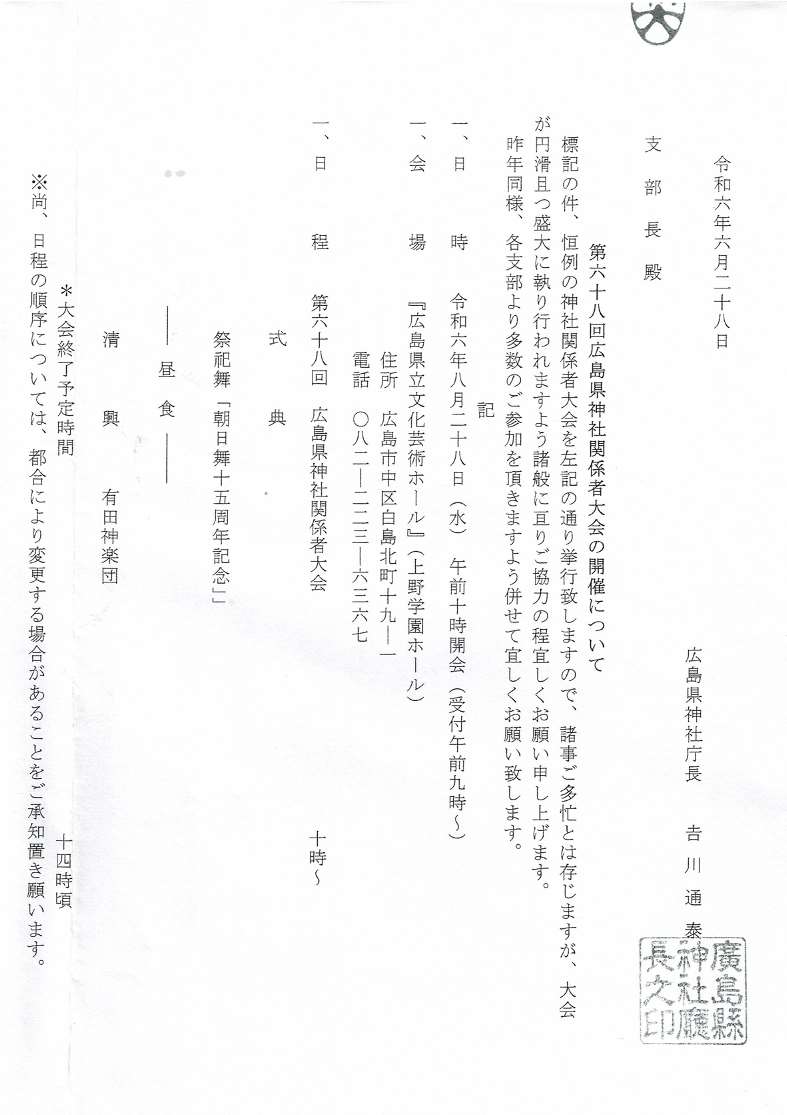 令和六年六月二十八日
広島県神社庁長　吉川通泰
廣島縣
神社廳
長之印
支部長殿
第六十八回広島県神社関係者大会の開催について
標記の件、恒例の神社関係者大会を左記の通り挙行致しますので、諸事ご多忙とは存じますが、大会
が円滑且つ盛大に執り行われますよう諸般に亘りご協力の程宜しくお願い申し上げます。
昨年同様、各支部より多数のご参加を頂きますよう併せて宜しくお願い致します。
記
一、日　時　令和六年八月二十八日（水）　午前十時開会（受付午前九時～）
一、会　場　『広島県立文化芸術ホール』（上野学園ホール）
住所　広島市中区白島北町十九―一
電話　〇八二―二二三―六三六七
一、日　程　第六十八回　広島県神社関係者大会　十時～
式　典
祭祀舞「朝日舞十五周年記念」」
――昼　食――
清　興　有田神楽団
＊大会終了予定時間　十四時頃
※尚、日程の順序については、都合により変更する場合があることをご承知置き願います。